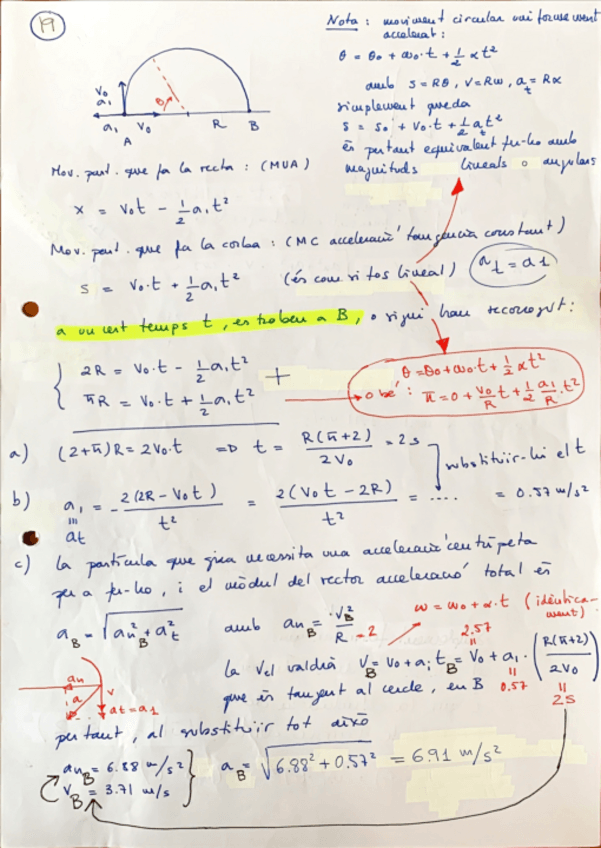 19
Nota : moviment circular uniformement
accelerat :
θ = θo + ωo·t + 1/2 α t²
amb s = Rθ, v = Rω, at = Rα
simplement queda
s = so + vo·t + 1/2 at t²
és per tant equivalent fer-ho amb
magnituds lineals o angulars
vo
a1
θ
a1 vo R B
A
Mov. part. que fa la recta : (MUA)
x = vo t - 1/2 a1 t²
Mov. part. que fa la corba : (MC acceleració tangencial constant)
s = vo·t + 1/2 a1 t² (és com si fos lineal) at = a1
a un cert temps t, es troben a B, o sigui han recorregut :
2R = vo·t - 1/2 a1 t²
πR = vo·t + 1/2 a1 t²
+
o bé :
θ = θo + ωo·t + 1/2 α t²
π = 0 + vo/R t + 1/2 a1/R · t²
a) (2+π)R = 2vo·t => t = R(π+2)/2vo = 2 s
substituir-hi el t
b) a1 = - 2(2R - vo t)/t² = 2(vo t - 2R)/t² = .... = 0.57 m/s²
at
c) la partícula que gira necessita una acceleració centrípeta
per a fer-ho, i el mòdul del vector acceleració total és
aB = √(anB² + at²) amb anB = vB²/R = 2
ω = ωo + α·t (idènticament)
2.57
la vel valdrà vB = vo + a1 tB = vo + a1 · (R(π+2)/2vo)
0.57
2s
que és tangent al cercle, en B
an
a
v
at = a1
per tant, al substituir tot això
anB = 6.88 m/s²
vB = 3.71 m/s
aB = √(6.88² + 0.57²) = 6.91 m/s²